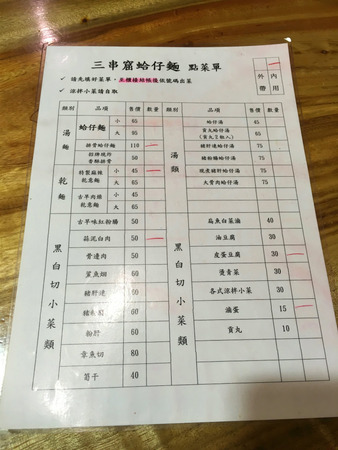 三串窟蛤仔麵 點菜單
✓ 請先填好菜單，至櫃檯結帳後依號碼出菜
✓ 涼拌小菜請自取
外帶 內用
類別 品項 售價 數量 類別 品項 售價 數量
湯麵
蛤仔麵 小 65
大 95
排骨蛤仔麵 110
招牌現炸香酥排骨 50
乾麵
特製麻辣乾意麵 小 45
大 65
古早肉燥乾意麵 小 45
大 65
湯類
蛤仔湯 65
貢丸蛤仔湯(貢丸2粒入) 65
豬肝連蛤仔湯 75
豬粉腸蛤仔湯 75
現煮豬肝蛤仔湯 75
大骨肉蛤仔湯 75
黑白切小菜類
古早味紅粉腸 50
蒜泥白肉 50
骨邊肉 50
鯊魚煙 60
豬肝連 60
粉肝 60
章魚切 80
筍干 40
黑白切小菜類
扁魚白菜滷 40
油豆腐 30
皮蛋豆腐 30
燙青菜 30
各式涼拌小菜 30
滷蛋 15
貢丸 10